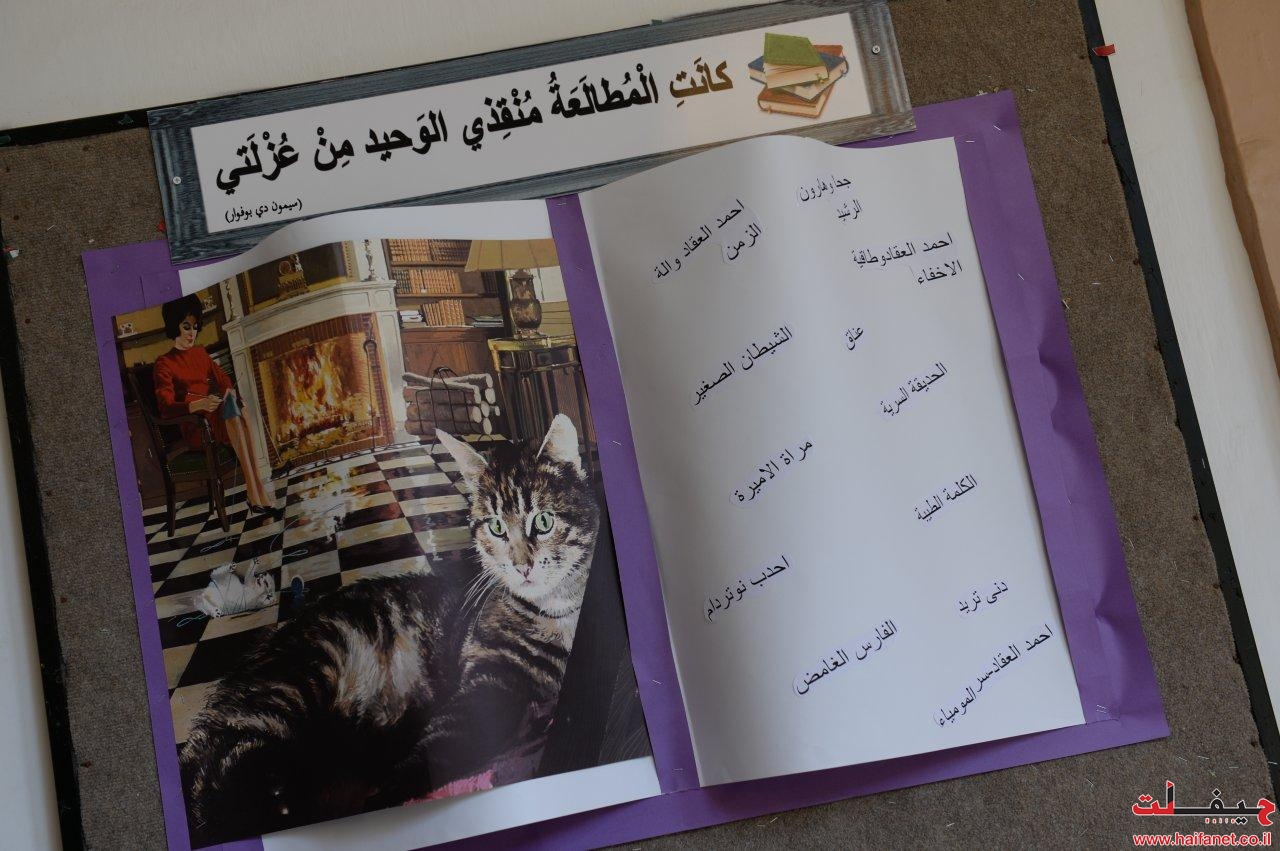 كانَتِ الْمُطالَعَةُ مُنْقِذي الوَحيد مِنْ عُزْلَتي
(سيمون دي بوفوار)
جحا وهارون
الرشيد
احمد العقاد والة
الزمن
احمد العقادوطاقية
الاخفاء
عناق
الشيطان الصغير
الحديقة السرية
مراة الاميرة
الكلمة الطيبة
احدب نوتردام
دنى تريد
الفارس الغامض
احمد العقاد-سر المومياء
حيفانت
www.haifanet.co.il